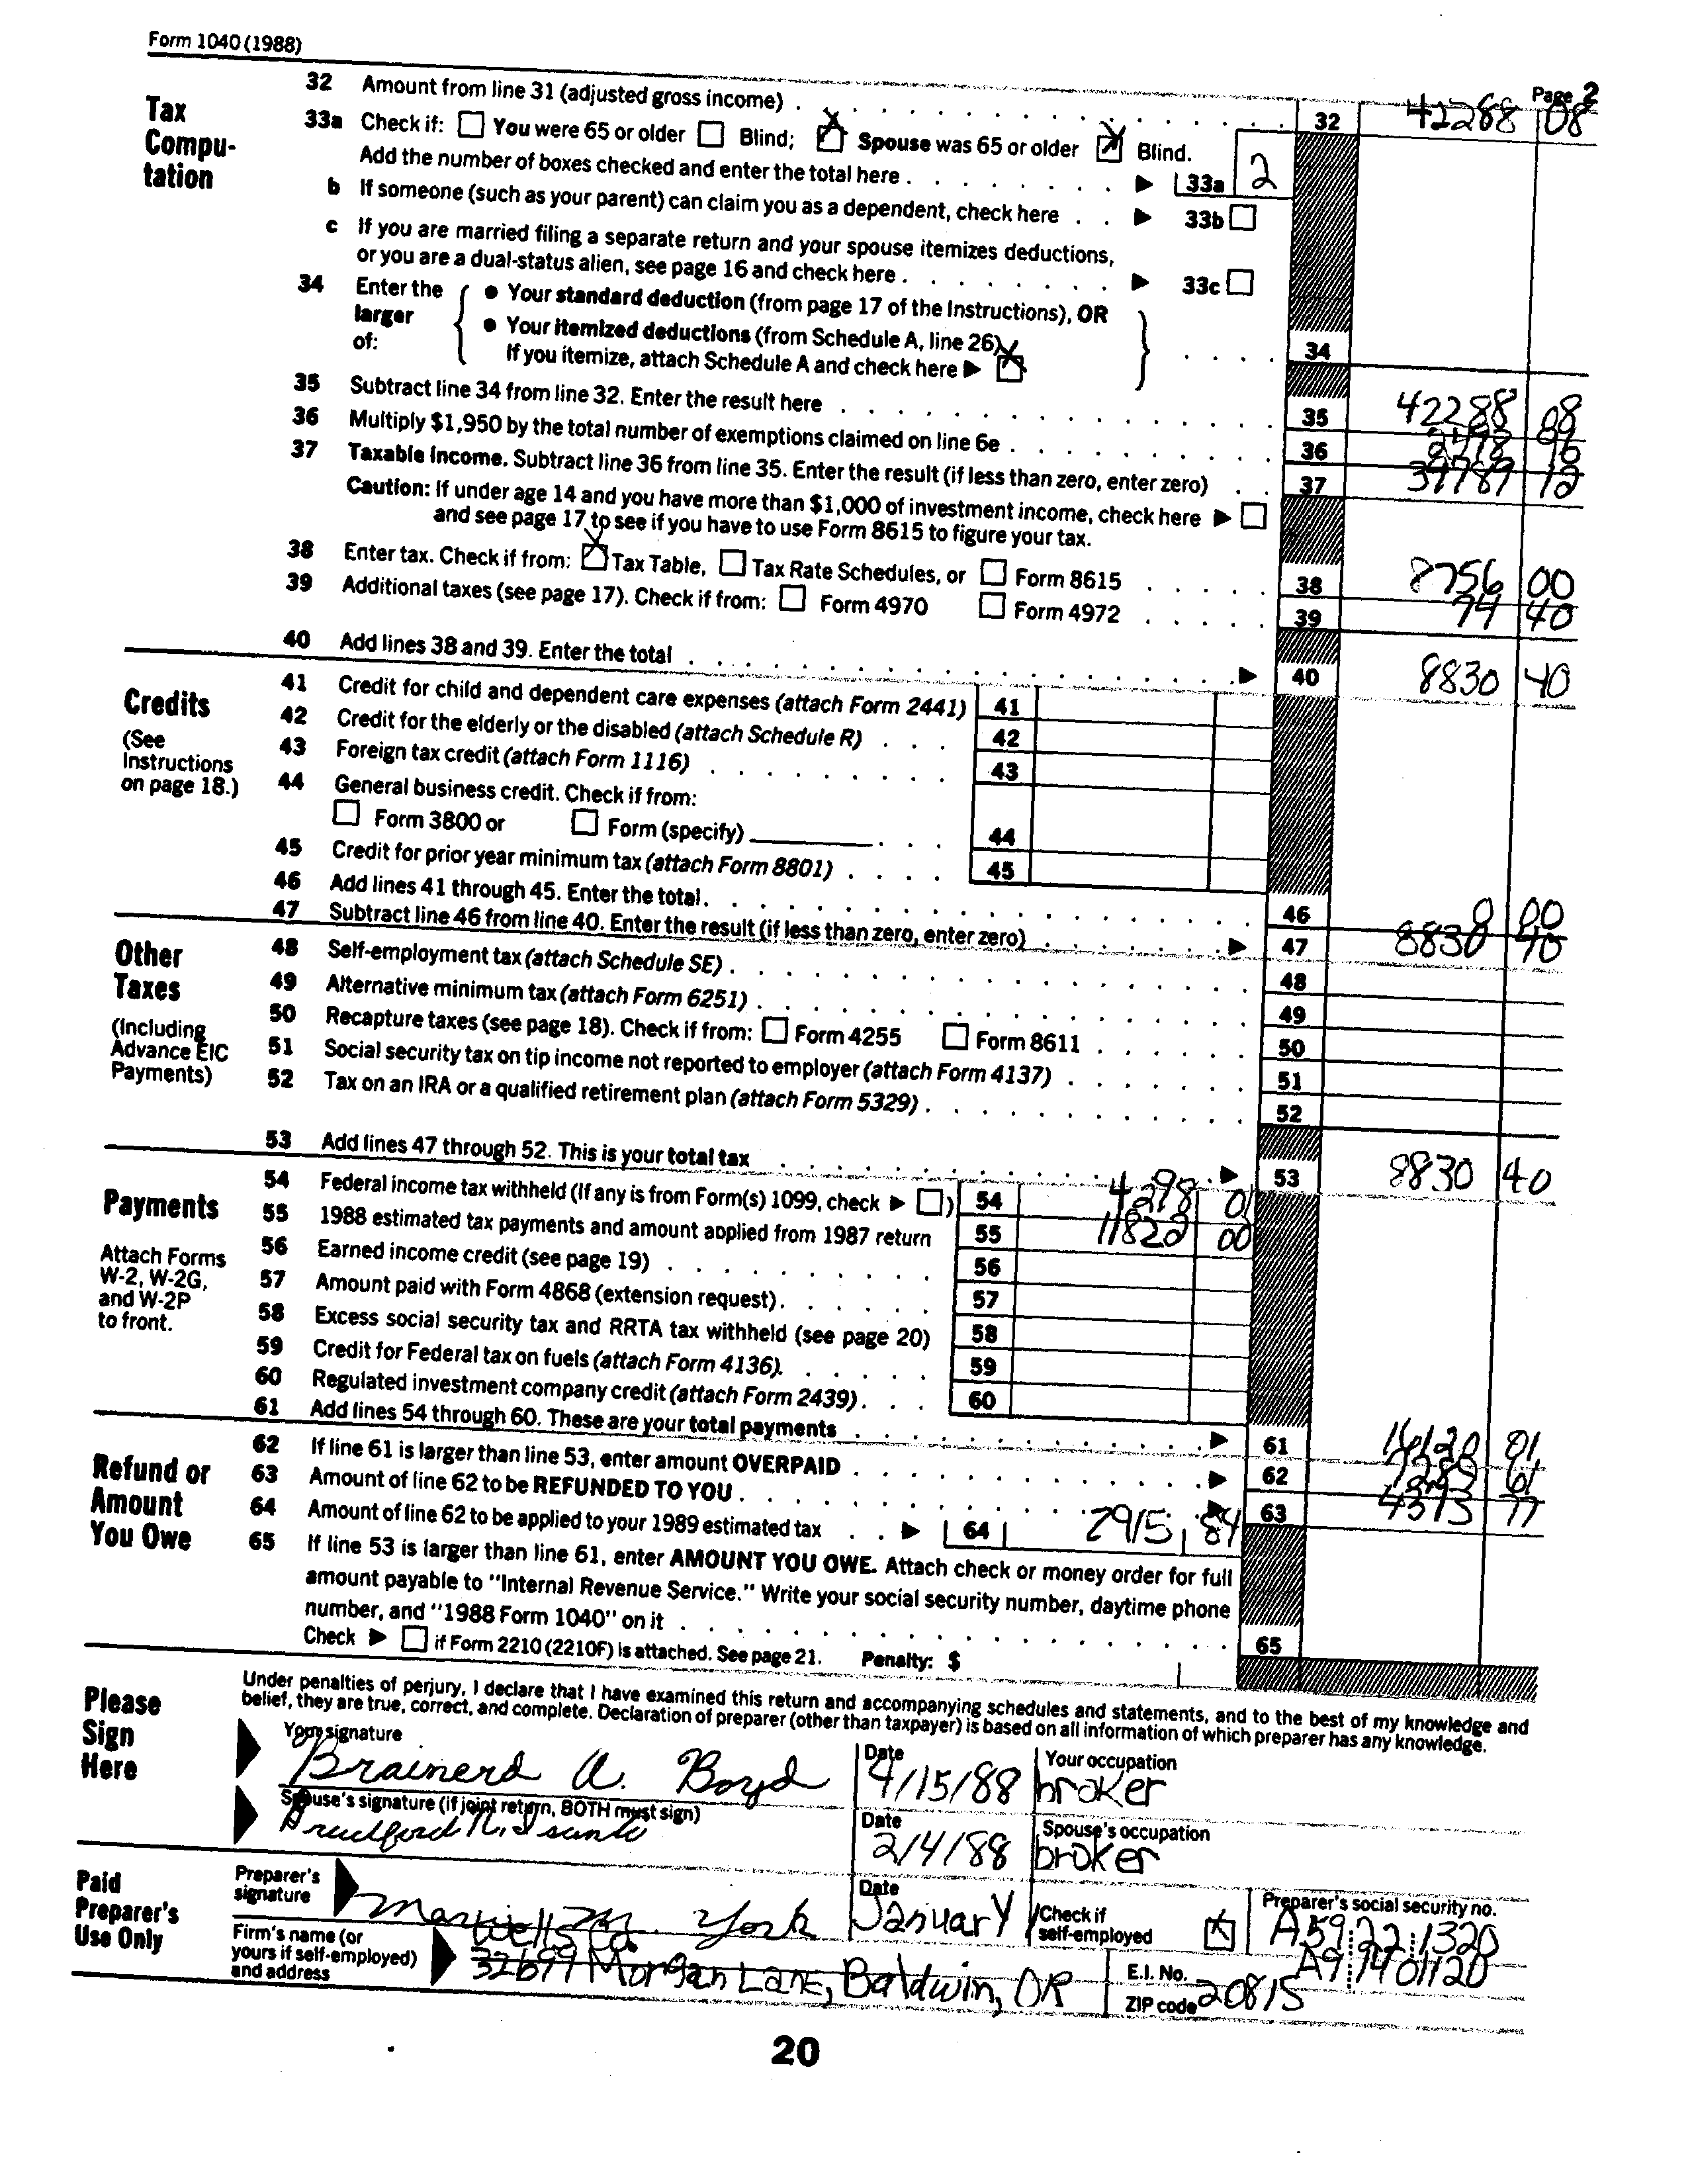 Form 1040 (1988)
Page 2
Tax Compu- tation
32 Amount from line 31 (adjusted gross income) . . . 32 42288 08
33a Check if: You were 65 or older Blind; X Spouse was 65 or older X Blind.
Add the number of boxes checked and enter the total here . . . 33a 2
b If someone (such as your parent) can claim you as a dependent, check here . . 33b
c If you are married filing a separate return and your spouse itemizes deductions,
or you are a dual-status alien, see page 16 and check here . . . 33c
34 Enter the larger of: • Your standard deduction (from page 17 of the Instructions), OR
• Your itemized deductions (from Schedule A, line 26)
If you itemize, attach Schedule A and check here ▶ X . . . . 34
35 Subtract line 34 from line 32. Enter the result here . . . 35 42288 08
36 Multiply $1,950 by the total number of exemptions claimed on line 6e . . . 36 96
37 Taxable income. Subtract line 36 from line 35. Enter the result (if less than zero, enter zero) . . 37 39789 12
Caution: If under age 14 and you have more than $1,000 of investment income, check here ▶
and see page 17 to see if you have to use Form 8615 to figure your tax.
38 Enter tax. Check if from: X Tax Table, Tax Rate Schedules, or Form 8615 . . . 38 8756 00
39 Additional taxes (see page 17). Check if from: Form 4970 Form 4972 . . . 39 74 40
40 Add lines 38 and 39. Enter the total . . . ▶ 40 8830 40
Credits
(See Instructions on page 18.)
41 Credit for child and dependent care expenses (attach Form 2441) 41
42 Credit for the elderly or the disabled (attach Schedule R) . . . 42
43 Foreign tax credit (attach Form 1116) . . . 43
44 General business credit. Check if from:
Form 3800 or Form (specify) . . . 44
45 Credit for prior year minimum tax (attach Form 8801) . . . . 45
46 Add lines 41 through 45. Enter the total . . . 46 0 00
47 Subtract line 46 from line 40. Enter the result (if less than zero, enter zero) . . . ▶ 47 8830 40
Other Taxes
(Including Advance EIC Payments)
48 Self-employment tax (attach Schedule SE) . . . 48
49 Alternative minimum tax (attach Form 6251) . . . 49
50 Recapture taxes (see page 18). Check if from: Form 4255 Form 8611 . . . 50
51 Social security tax on tip income not reported to employer (attach Form 4137) . . . 51
52 Tax on an IRA or a qualified retirement plan (attach Form 5329) . . . 52
53 Add lines 47 through 52. This is your total tax . . . ▶ 53 8830 40
Payments
Attach Forms W-2, W-2G, and W-2P to front.
54 Federal income tax withheld (If any is from Form(s) 1099, check ▶ ) 54 4298 01
55 1988 estimated tax payments and amount applied from 1987 return 55 11822 00
56 Earned income credit (see page 19) . . . 56
57 Amount paid with Form 4868 (extension request) . . . 57
58 Excess social security tax and RRTA tax withheld (see page 20) 58
59 Credit for Federal tax on fuels (attach Form 4136) . . . 59
60 Regulated investment company credit (attach Form 2439) . . . 60
61 Add lines 54 through 60. These are your total payments . . . ▶ 61 16120 01
Refund or Amount You Owe
62 If line 61 is larger than line 53, enter amount OVERPAID . . . ▶ 62 7289 61
63 Amount of line 62 to be REFUNDED TO YOU . . . ▶ 63 4373 77
64 Amount of line 62 to be applied to your 1989 estimated tax . . ▶ 64 2915 84
65 If line 53 is larger than line 61, enter AMOUNT YOU OWE. Attach check or money order for full
amount payable to "Internal Revenue Service." Write your social security number, daytime phone
number, and "1988 Form 1040" on it . . . 65
Check ▶ if Form 2210 (2210F) is attached. See page 21. Penalty: $
Please Sign Here
Under penalties of perjury, I declare that I have examined this return and accompanying schedules and statements, and to the best of my knowledge and
belief, they are true, correct, and complete. Declaration of preparer (other than taxpayer) is based on all information of which preparer has any knowledge.
Your signature Date Your occupation
Brainerd A. Boyd 4/15/88 broker
Spouse's signature (if joint return, BOTH must sign) Date Spouse's occupation
2/4/88 broker
Paid Preparer's Use Only
Preparer's signature Date Check if self-employed X Preparer's social security no.
M. York January A59 22 1320
Firm's name (or yours if self-employed) and address
32699 Morgan Lane, Baldwin, OR
E.I. No. A9 7401120
ZIP code 20815
20